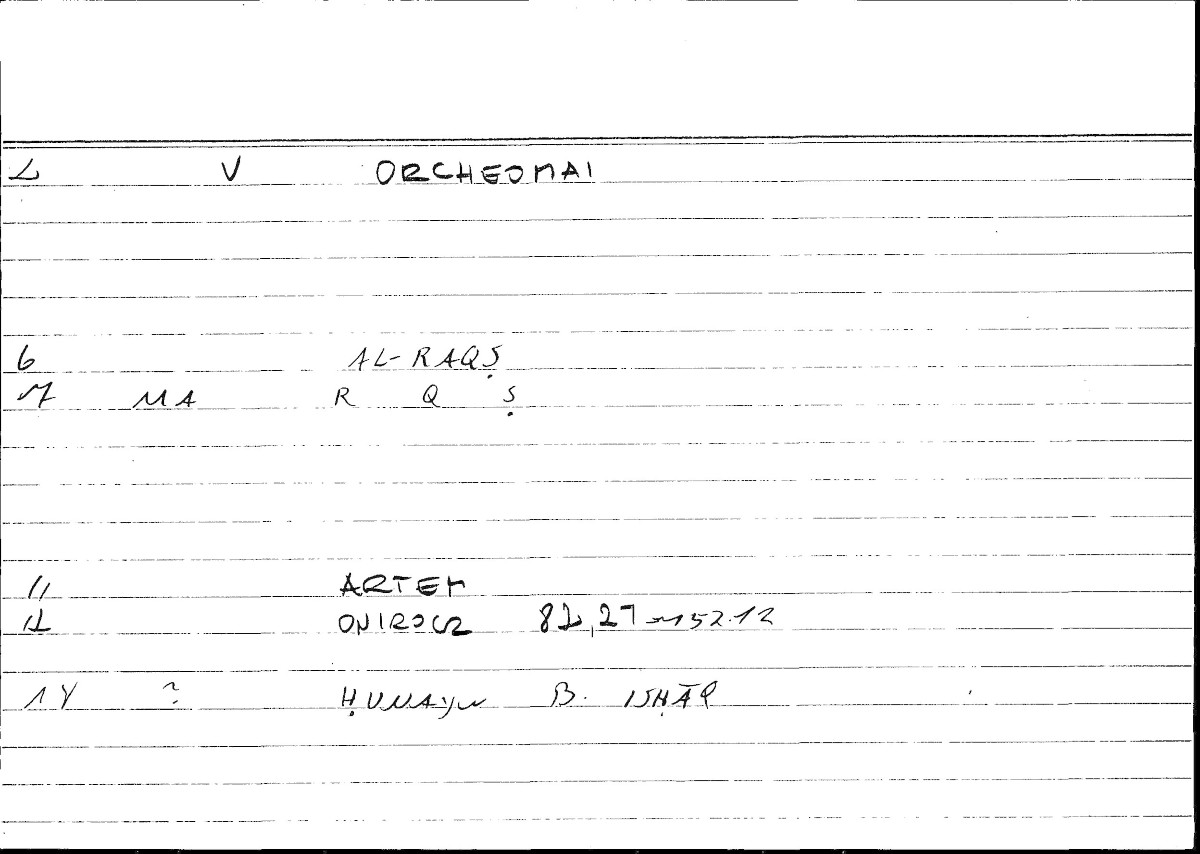 2 V ORCHEOMAI
6 AL-RAQṢ
7 MA R Q Ṣ
11 ARTEM
12 ONIROCR 82,27 152.12
14 ? ḤUNAYN B. ISḤĀQ